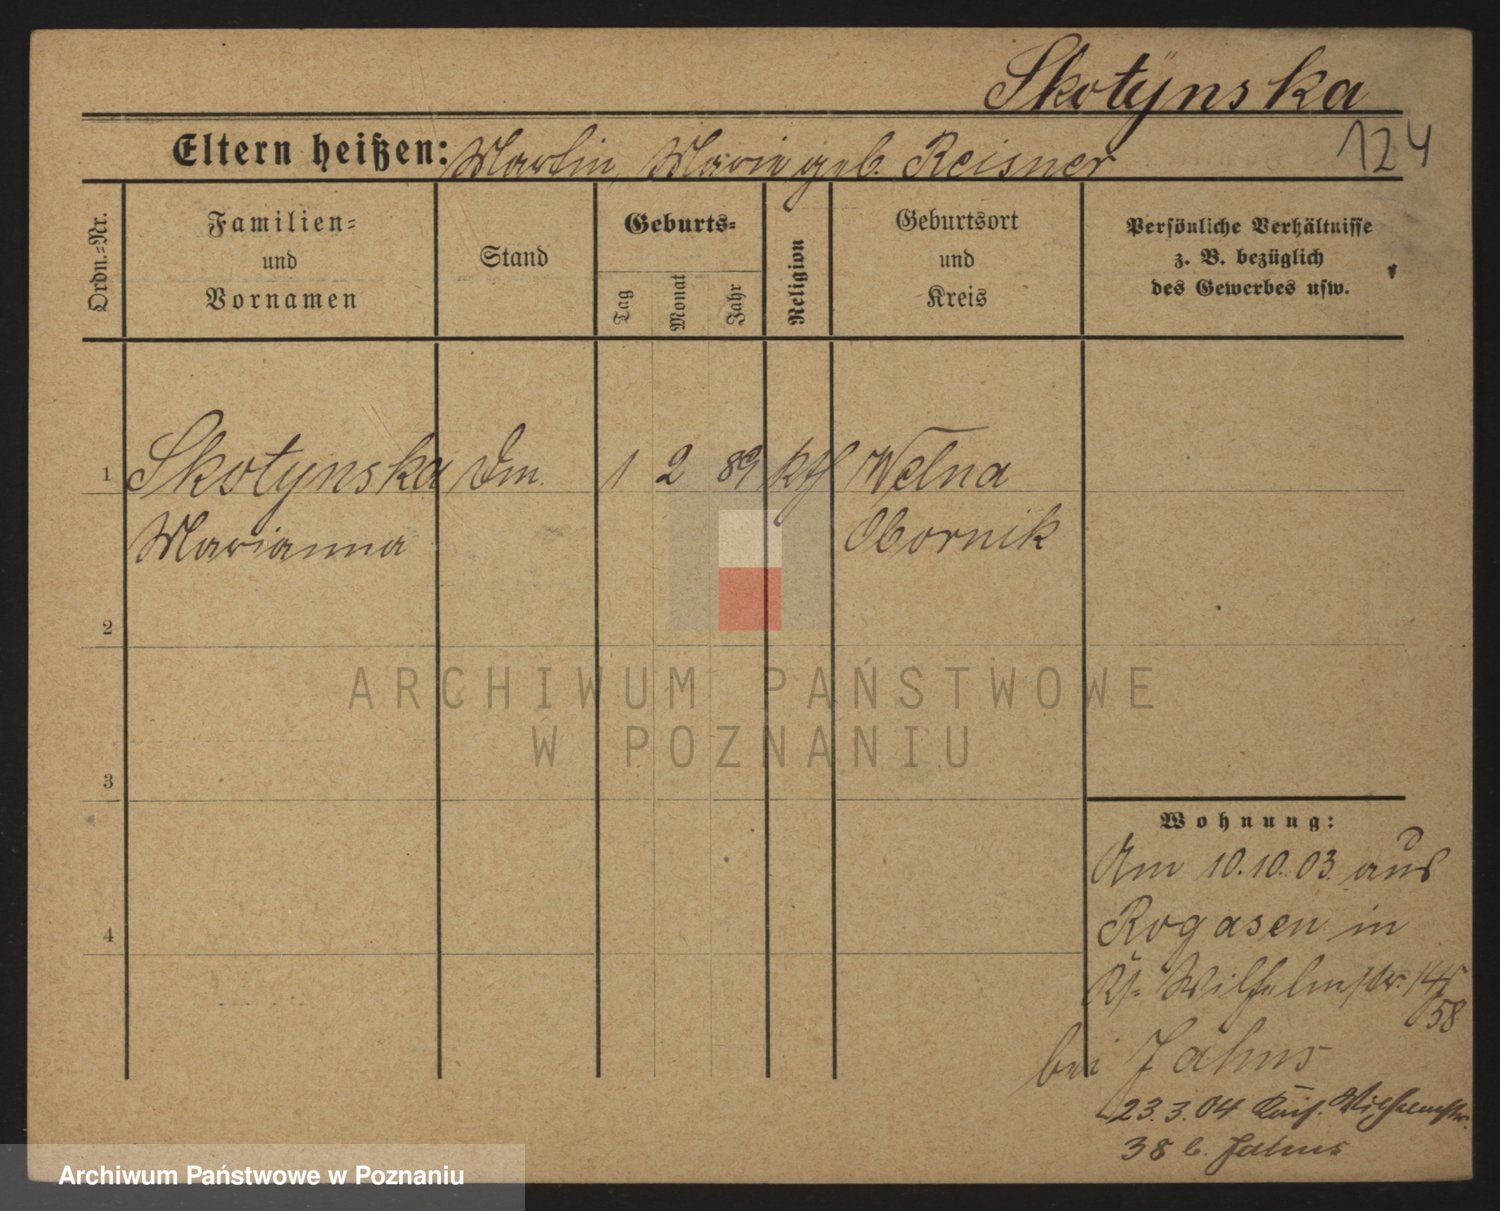 Skotÿnska
Eltern heißen: Martin, Marie geb. Reisner
124
Ordn.-Nr.
Familien-
und
Vornamen
Stand
Geburts-
Tag
Monat
Jahr
Religion
Geburtsort
und
Kreis
Persönliche Verhältnisse
z. B. bezüglich
des Gewerbes usw.
1 Skotynska Dm. 1 2 89 kth Welna
Marianna Obornik
2
3
4
Wohnung:
Am 10.10.03. aus
Rogasen in
Ks. Wilhelmstr. 145
58
bei Jahns
23.3.04 Kais. Wilhelmstr.
38 b. Jahns
ARCHIWUM PAŃSTWOWE
W POZNANIU
Archiwum Państwowe w Poznaniu